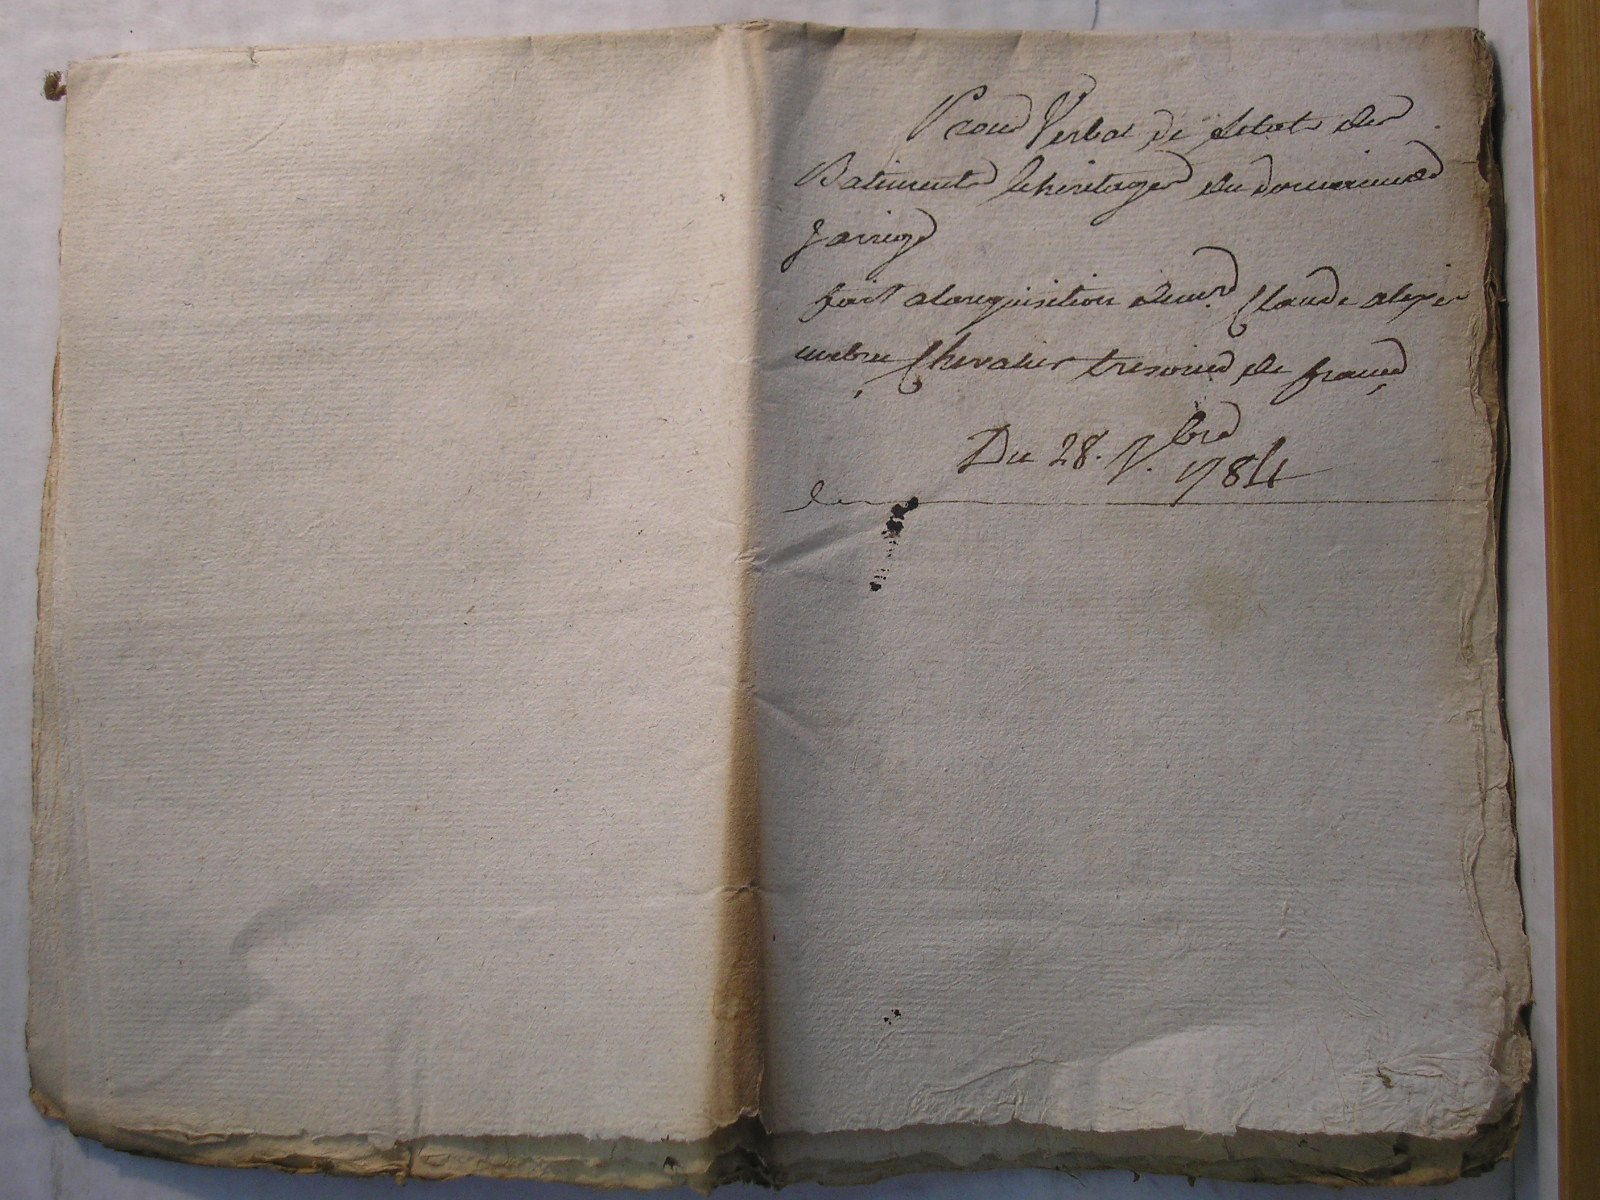 Proces Verbal de letat des
Batiments & heritages du domaine de
Jarrige
fait a la requisition de mr. Claude alexis
mabru Chevalier tresorier de france
Du 28. 7.bre 1784